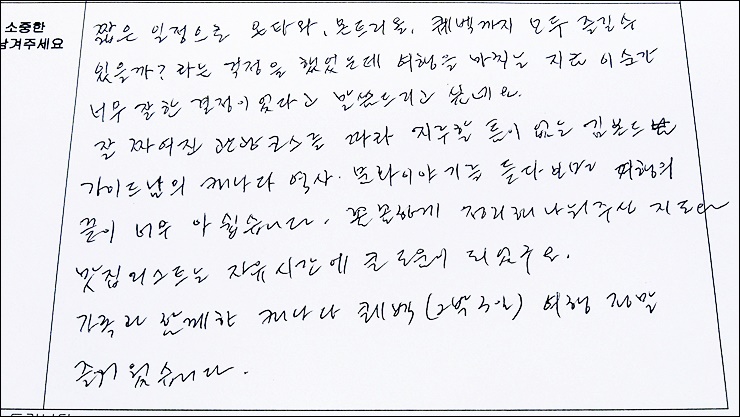 소중한
남겨주세요
짧은 일정으로 오타와, 몬트리올, 퀘벡까지 모두 즐길 수
있을까? 라는 걱정을 했었는데 여행을 마치는 지금 이 순간
너무 잘한 결정이었다고 말씀드리고 싶네요.
잘 짜여진 관광코스를 따라 지루할 틈이 없는
가이드님의 캐나다 역사·문화이야기를 듣다보면 여행의
끝이 너무 아쉽습니다. 꼼꼼하게 정리해 나눠주신 지도와
맛집리스트는 자유시간에 큰 도움이 되었구요.
가족과 함께한 캐나다 퀘벡 (2박3일) 여행 정말
즐거웠습니다.